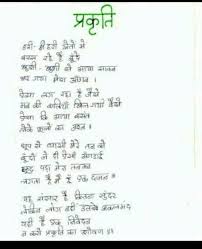 प्रकृति
हरी-हरी खेतों में
बरस रही है बूंदे
खुशी-खुशी से आया सावन
भर गया मेरा आंगन ।
ऐसा लग रहा है जैसे
मन की कलियां खिल गयी जैसे
ऐसा कि आया बसंत
लेके फूलों का जश्न ।
धूप से प्यासी मेरे तन को
बूंदों ने दी ऐसी अंगड़ाई
कूद पड़ा मेरा तनमन
लगता है मैं हूं एक दामन ।
यह संसार है कितना सुंदर
लेकिन लोग नहीं उतने अकलमंद
यही है एक निवेदन
न करो प्रकृति का शोषण ।।